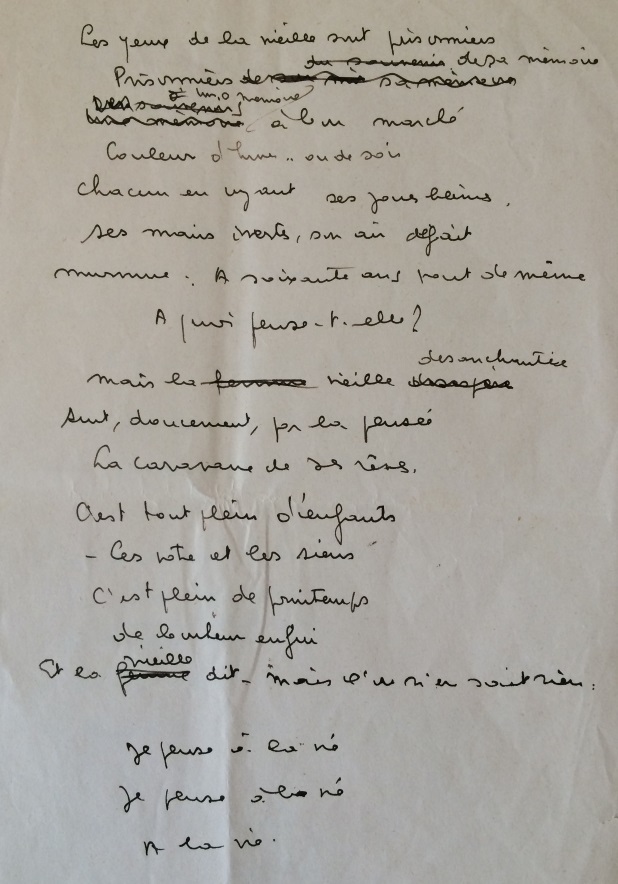 Les yeux de la vieille sont prisonniers
du souvenir de sa mémoire
Prisonniers de sa mémoire
mémoire
à bon marché
Couleur d'hume .. ou de soir
Chacun en voyant ses joues
ses mains inertes, son air défait
murmure : A soixante ans tout de même
A quoi pense-t-elle ?
désenchantée
mais la femme vieille
Suit, doucement, par la pensée
La caravane de ses rêves.
C'est tout plein d'enfants
- Les notre et les siens
C'est plein de printemps
de bonheur enfui
vieille
Et la femme dit - mais l'on n'en sait rien :
Je pense à la vie
Je pense à la vie
A la vie.